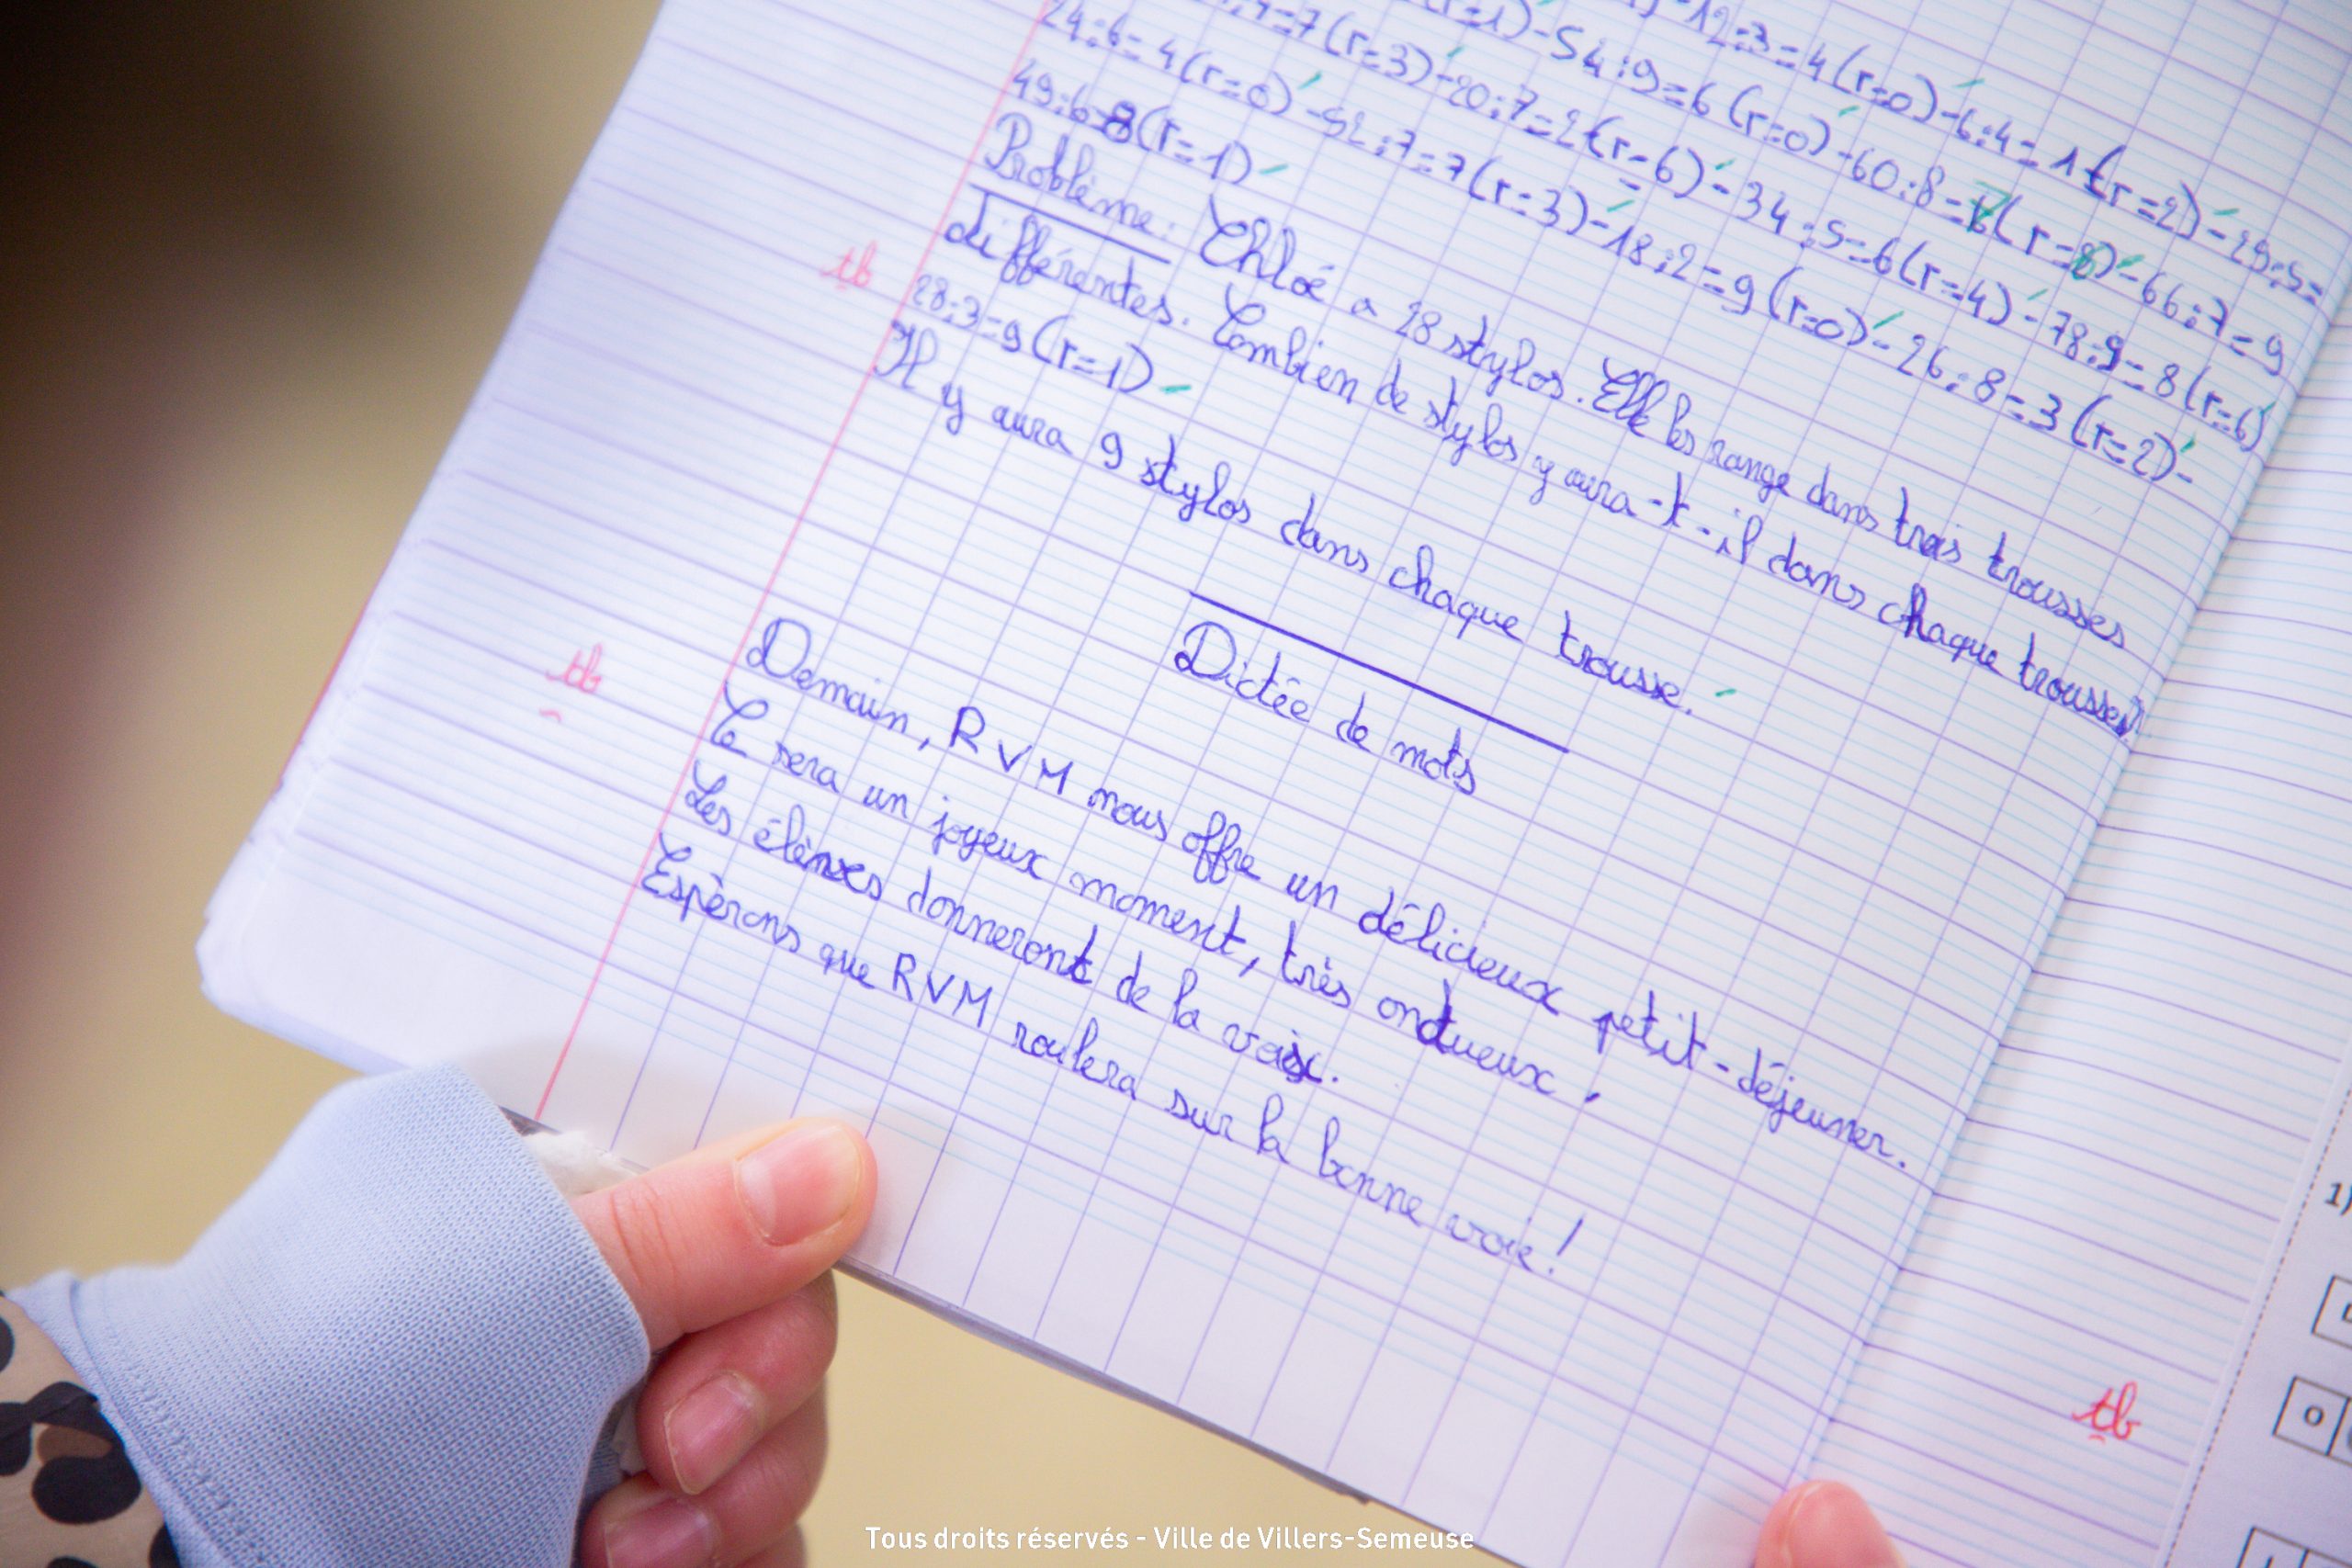 (r=1) - 54:9=6 (r=0) - 60:8=7(r=8) - 66:7=9
12:3=4(r=0) - 6:4=1(r=2) - 29:5=
=7(r=3) - 20:7=2(r=6) - 34:5=6(r=4) - 78:9=8(r=6)
24:6=4(r=0) - 52:7=7(r=3) - 18:2=9(r=0) - 26:8=3(r=2) -
49:6=8(r=1)
Problème: Chloé a 28 stylos. Elle les range dans trois trousses
différentes. Combien de stylos y aura-t-il dans chaque trousses?
tb
28:3=9(r=1)
Il y aura 9 stylos dans chaque trousse.
Dictée de mots
tb
Demain, RVM nous offre un délicieux petit-déjeuner.
Ce sera un joyeux moment, très onctueux,
Les élèves donneront de la voix.
Espèrons que RVM roulera sur la bonne voie!
tb
1)
O
Tous droits réservés - Ville de Villers-Semeuse